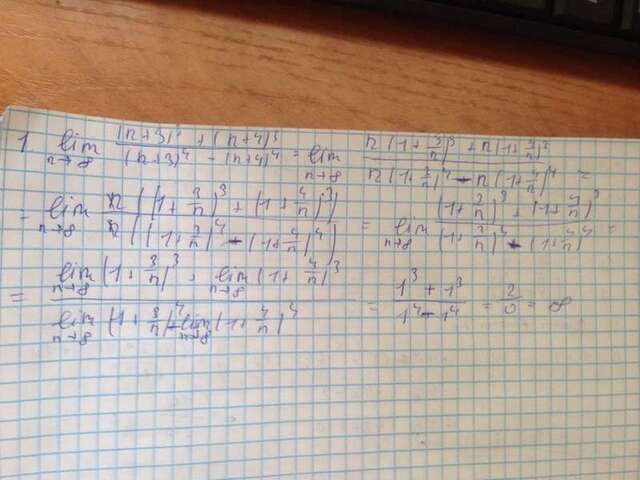 1. lim n→∞ ((n+3)³ + (n+4)³) / ((n+3)⁴ - (n+4)⁴) = lim n→∞ (n(1+3/n)³ + n(1+3/n)³) / (n(1+3/n)⁴ - n(1+4/n)⁴) =
= lim n→∞ n((1+3/n)³ + (1+4/n)³) / n((1+3/n)⁴ - (1+4/n)⁴) = lim n→∞ ((1+3/n)³ + (1+4/n)³) / ((1+3/n)⁴ - (1+4/n)⁴) =
= (lim n→∞ (1+3/n)³ + lim n→∞ (1+4/n)³) / (lim n→∞ (1+3/n)⁴ - lim n→∞ (1+4/n)⁴) = (1³ + 1³) / (1⁴ - 1⁴) = 2/0 = ∞